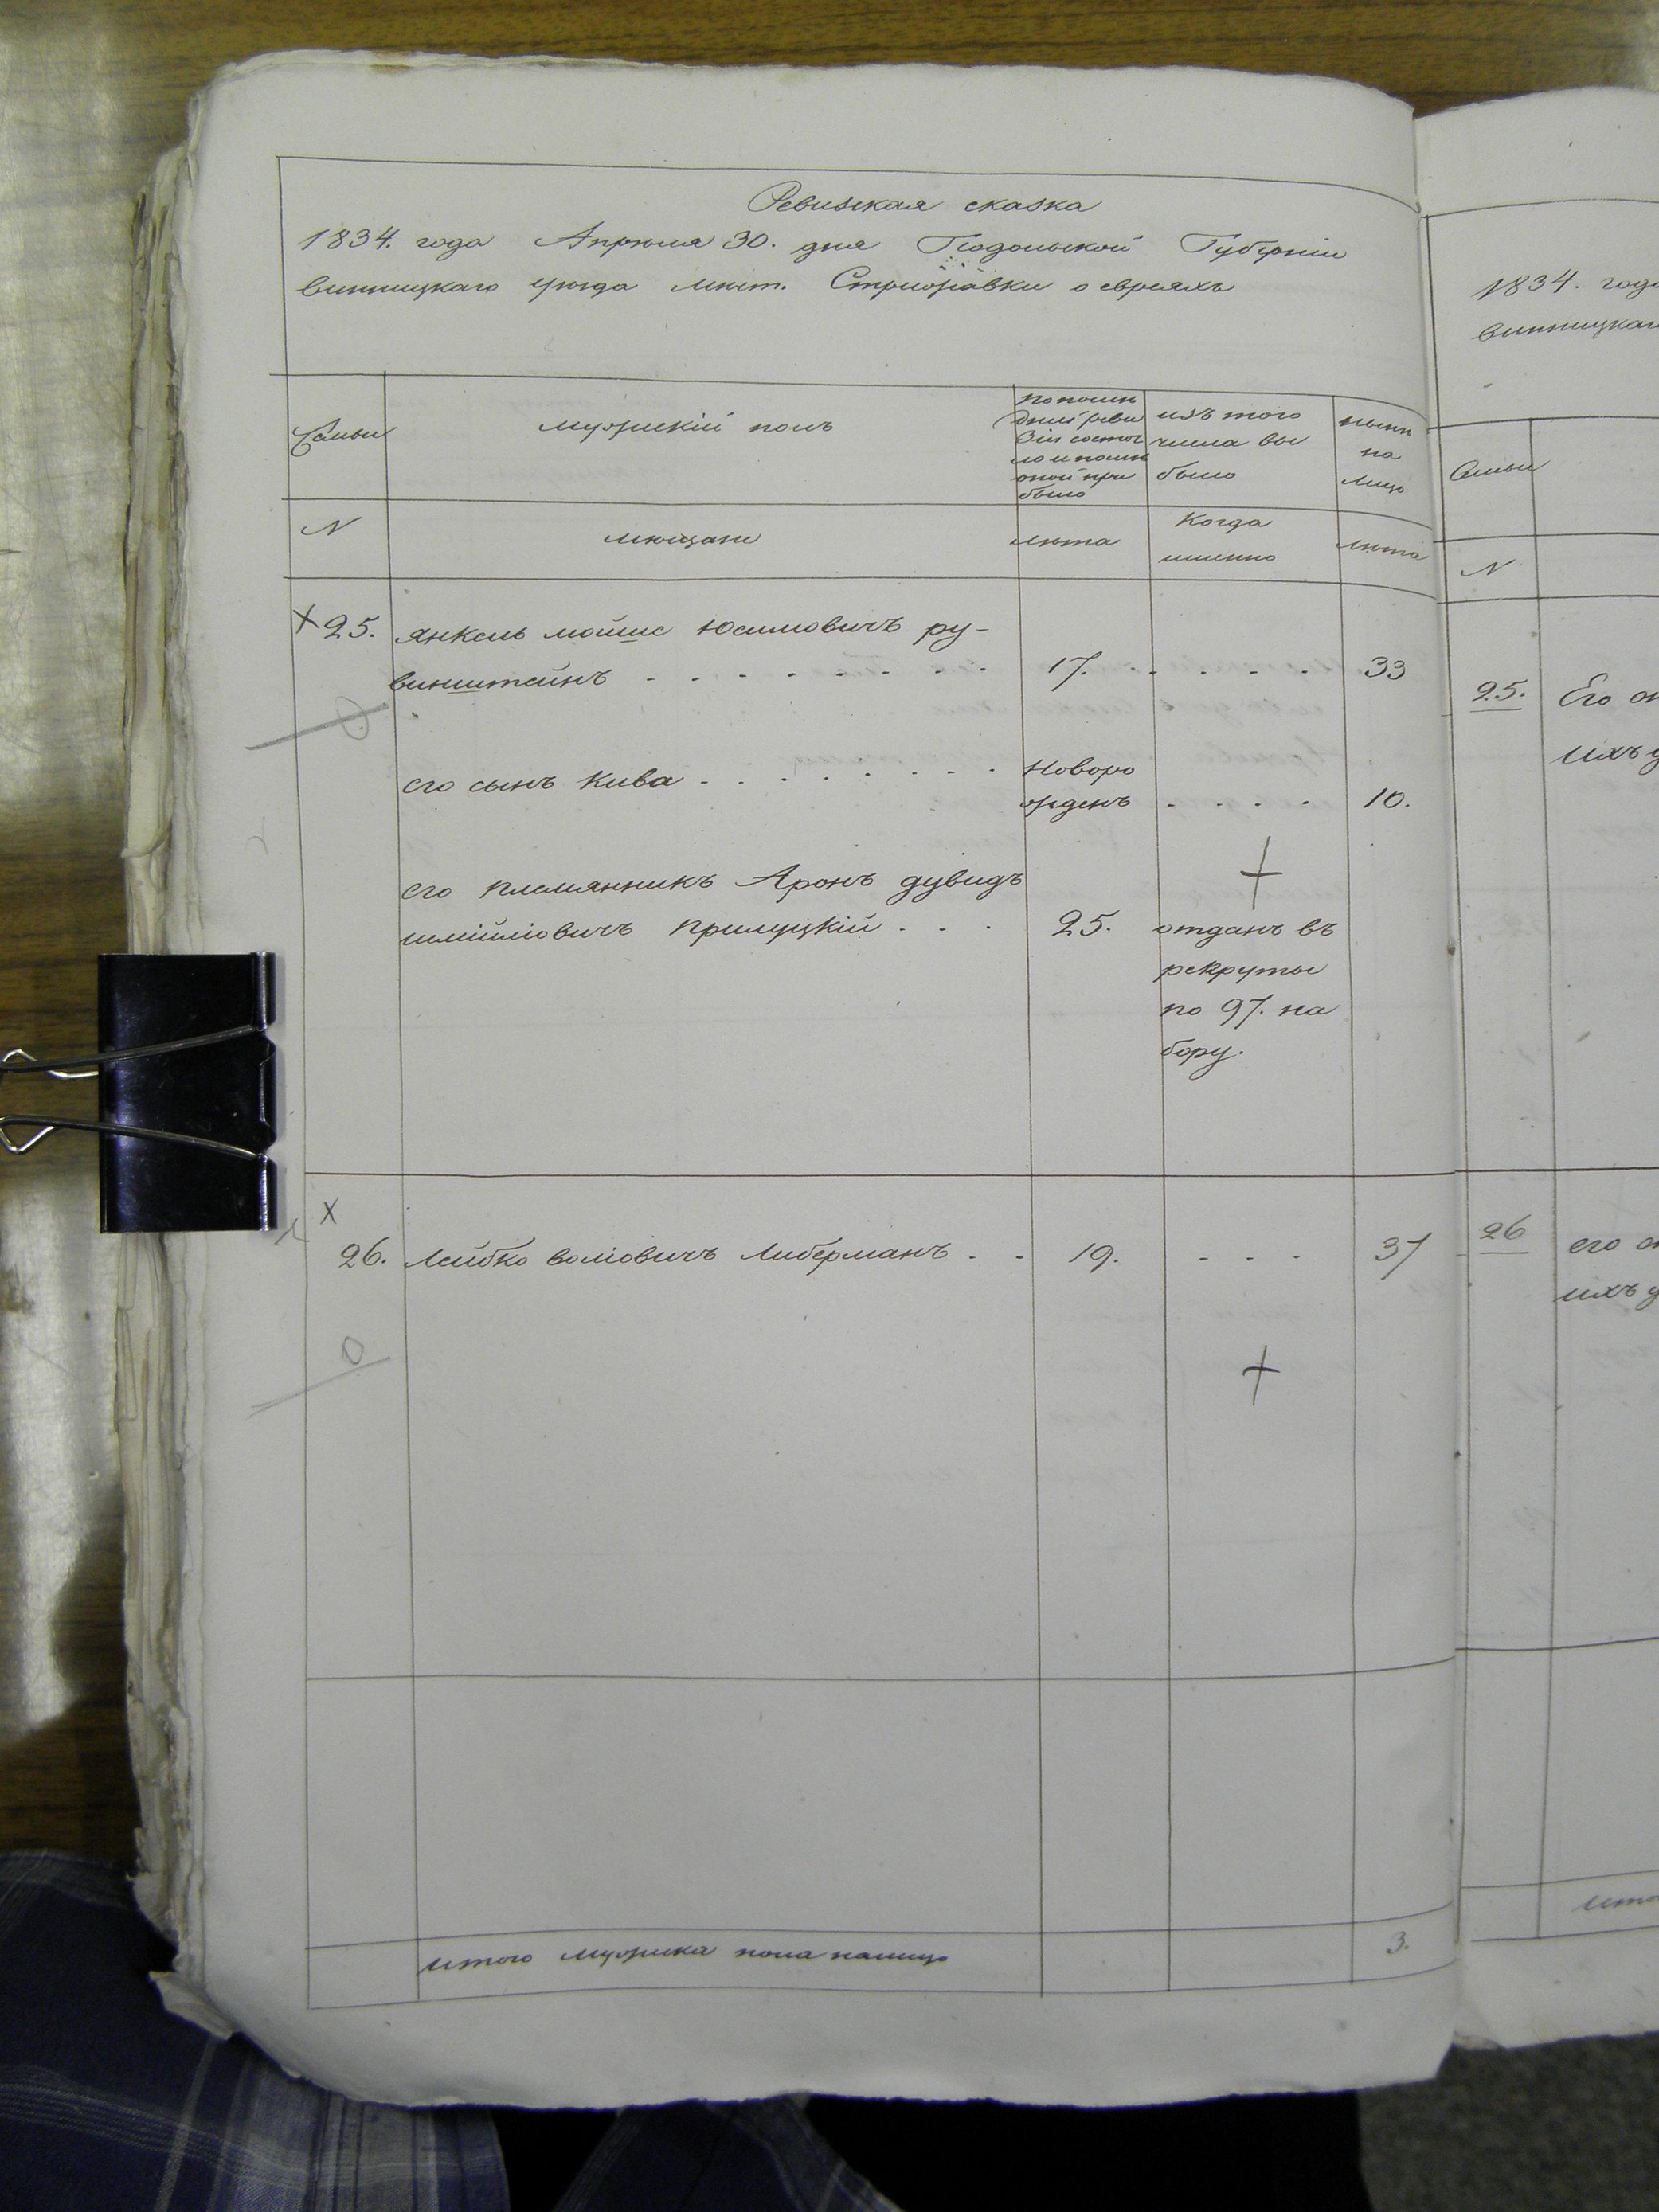 Ревизская сказка
1834. года Апрѣля 30. дня Подольской Губерніи
винницкаго уѣзда мѣст. Стрижавки о евреяхъ
Семьи
мужескій полъ
по послѣ
дней реви
зіи состоя
ло и послѣ
оной при
было
изъ того
числа вы
было
нынѣ
на
лицо
N
мѣщане
лѣта
Когда
именно
лѣта
25. янкель мойше Юсимовичъ ру-
винштейнъ - - - - - - - - 17. - - - - - 33
его сынъ Кива - - - - - - - - Новоро
жденъ - - - - 10.
его племянникъ Аронъ дувидъ
шмійловичъ прилуцкій . . . 25. отданъ въ
рекруты
по 97. на
бору.
26. Лейбко волювичъ Либерманъ - - 19. - - - 37
итого мужеска пола налицо 3.
1834. года
винницкаго
Семьи
N
25. Его
ихъ
26 его
ихъ